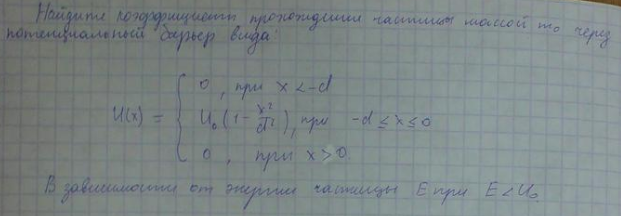 Найдите коэффициент прохождения частицы массой m₀ через
потенциальный барьер вида:
0, при x < -d
U(x) = { U₀ (1 - x²/d²), при -d ≤ x ≤ 0
0, при x > 0
В зависимости от энергии частицы E при E < U₀